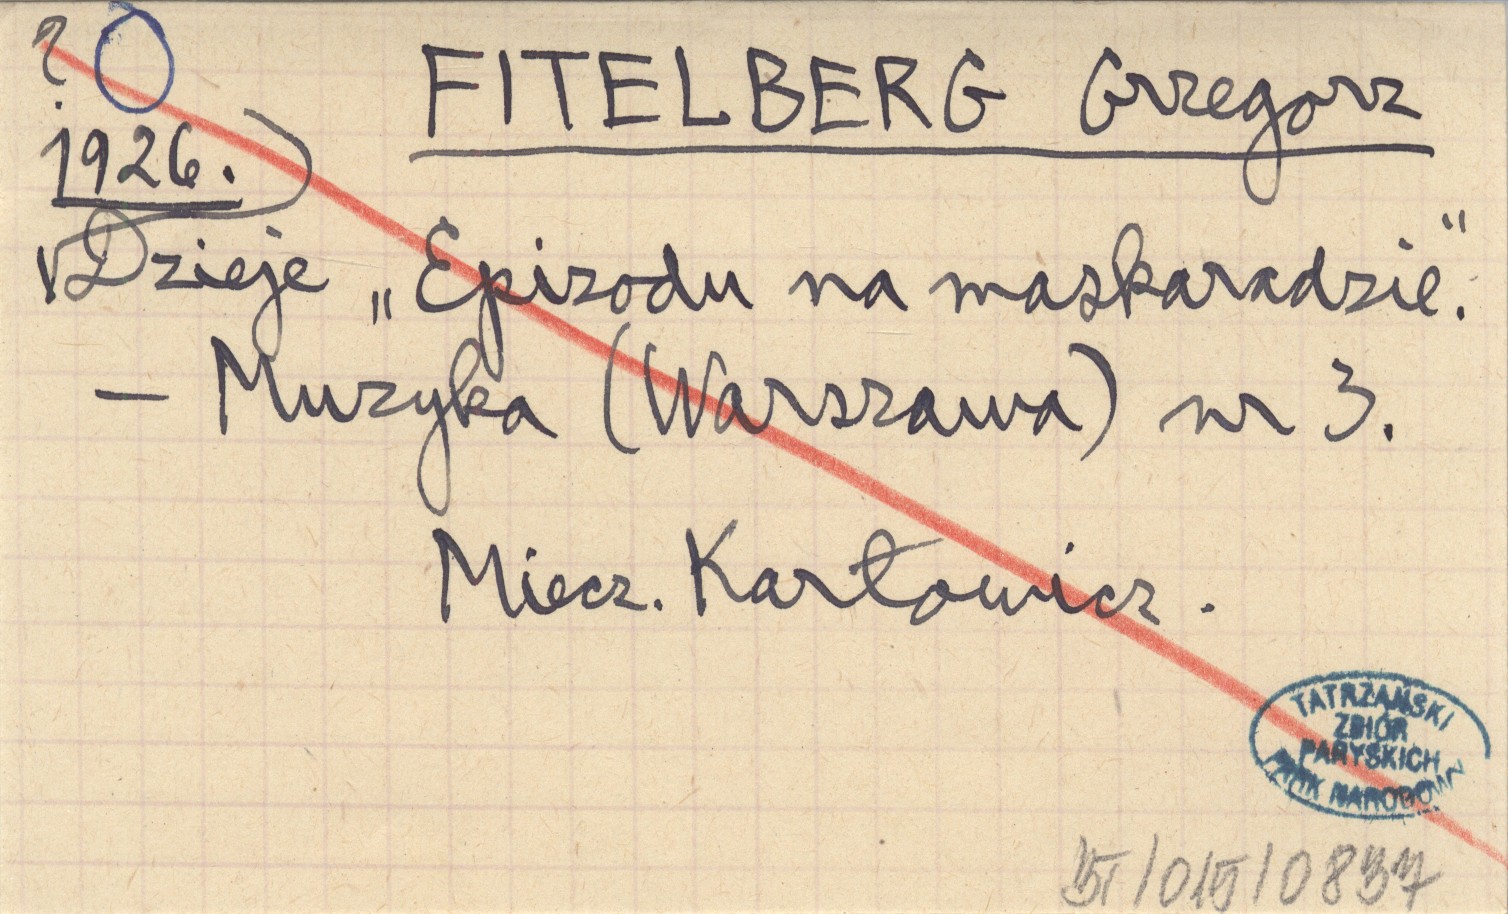 ?
FITELBERG Grzegorz
1926.
Dzieje „Epizodu na maskaradzie".
— Muzyka (Warszawa) nr 3.
Miecz. Karłowicz.
TATRZAŃSKI
ZBIÓR
PARYSKICH
PARK NARODOWY
/015/0837